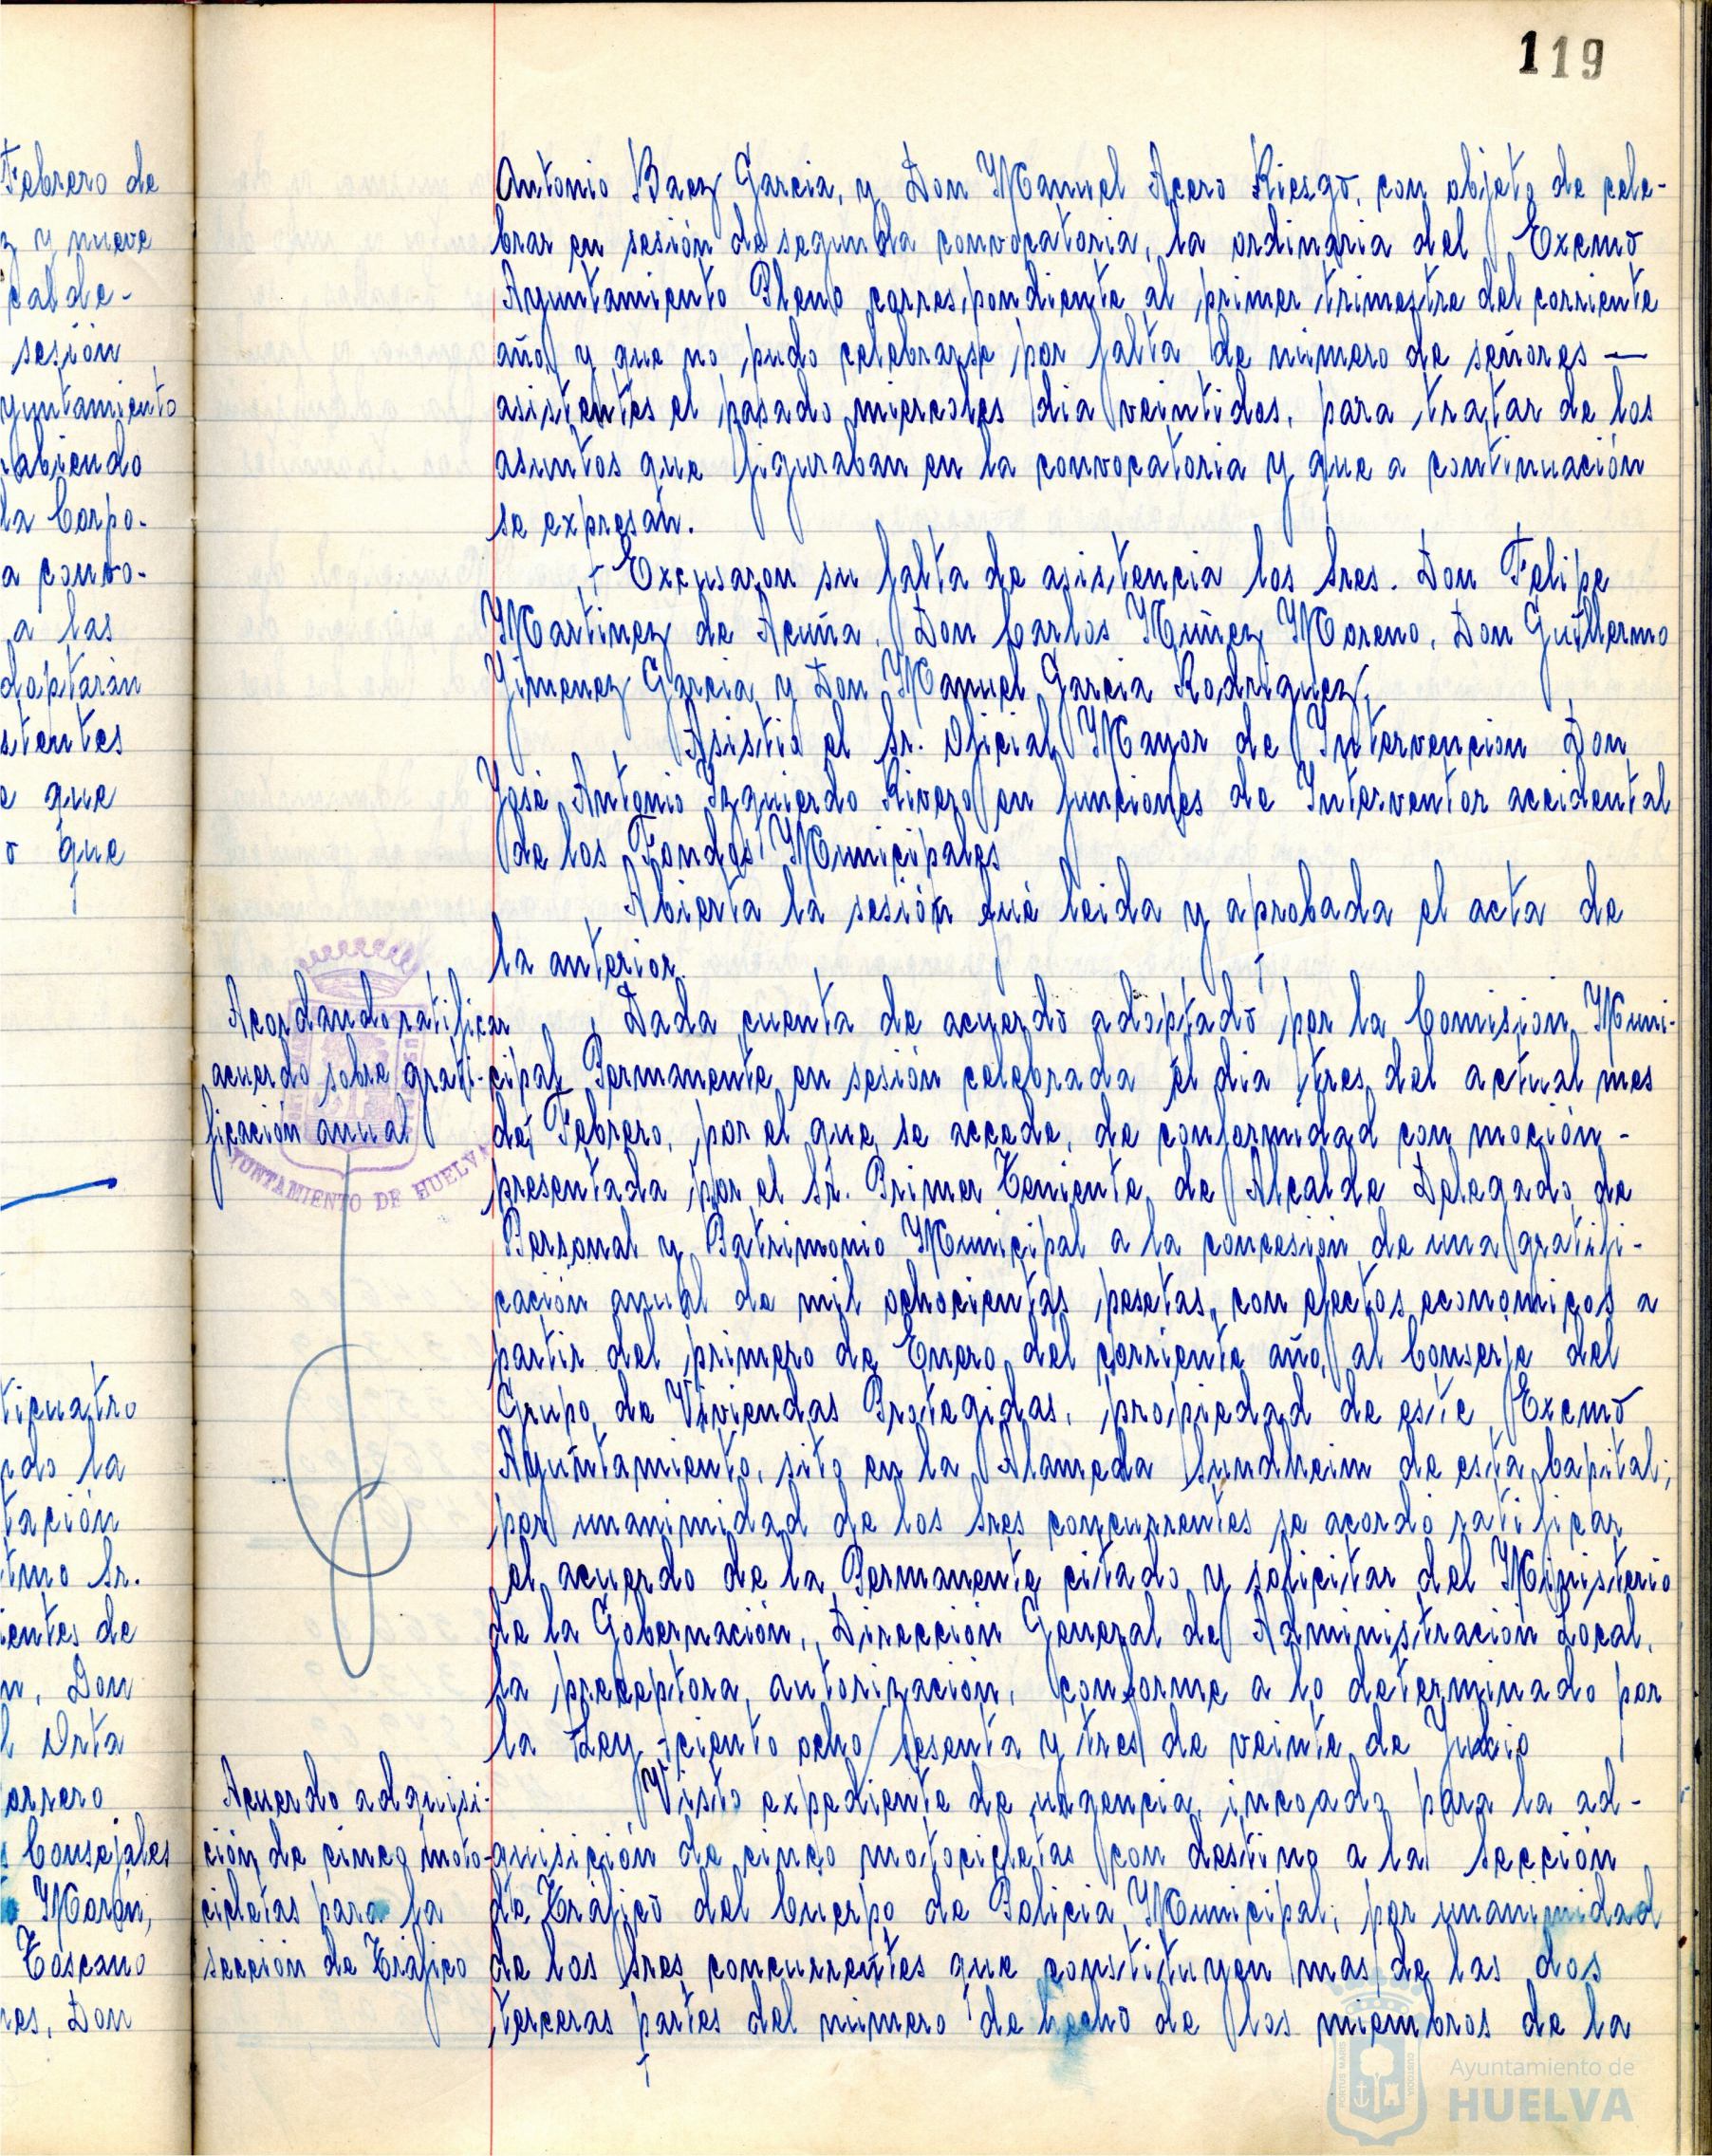 119
Febrero de
z y nueve
calde-
sesión
yuntamiento
abiendo
la Corpo-
a convo-
a las
doptarán
stentes
e que
o que
ticuatro
ndo la
tación
tmo Sr.
ientes de
n, Don
l Orta
orrero
s Consejales
Morón,
Toscano
res, Don
Antonio Baez Garcia, y Don Manuel Acero Riesgo, con objeto de cele-
brar en sesión de segunda convocatoria, la ordinaria del Excmo
Ayuntamiento Pleno correspondiente al primer trimestre del corriente
año y que no pudo celebrarse por falta de número de señores —
asistentes el pasado miercoles dia veintidos, para tratar de los
asuntos que figuraban en la convocatoria y que a continuación
se expresan.
Excusaron su falta de asistencia los Sres. Don Felipe
Martinez de Acuña, Don Carlos Muñez Moreno, Don Guillermo
Jimenez Garcia y Don Manuel Garcia Rodriguez,
Asistio el Sr. Oficial Mayor de Intervencion Don
José Antonio Izquierdo Rivero en funciones de Interventor accidental
de los Fondos Municipales
Abierta la sesión fué leida y aprobada el acta de
la anterior.
Acordando ratificar
acuerdo sobre grati-
ficación anual
Dada cuenta de acuerdo adoptado por la Comision Muni-
cipal Permanente en sesión celebrada el dia tres del actual mes
de Febrero, por el que se accede, de conformidad con moción -
presentada por el Sr. Primer Teniente de Alcalde Delegado de
Personal y Patrimonio Municipal a la concesión de una gratifi-
cación anual de mil ochocientas pesetas, con efectos economicos a
partir del primero de Enero del corriente año, al Conserje del
Grupo de Viviendas Protegidas, propiedad de este Excmo
Ayuntamiento, sito en la Alameda Sundheim de esta Capital;
por unanimidad de los Sres concurrentes se acordo ratificar
el acuerdo de la Permanente citado y solicitar del Ministerio
de la Gobernación, Dirección General de Administración Local,
la preceptora autorización, conforme a lo determinado por
la Ley ciento ocho/sesenta y tres de veinte de Julio
Acuerdo adquisi-
ción de cinco moto-
cicletas para la
sección de Tráfico
Visto expediente de urgencia incoado para la ad-
quisición de cinco motocicletas con destino a la sección
de Tráfico del Cuerpo de Policia Municipal; por unanimidad
de los Sres concurrentes que constituyen mas de las dos
terceras partes del número de hecho de los miembros de la
AYUNTAMIENTO DE HUELVA
Ayuntamiento de
HUELVA